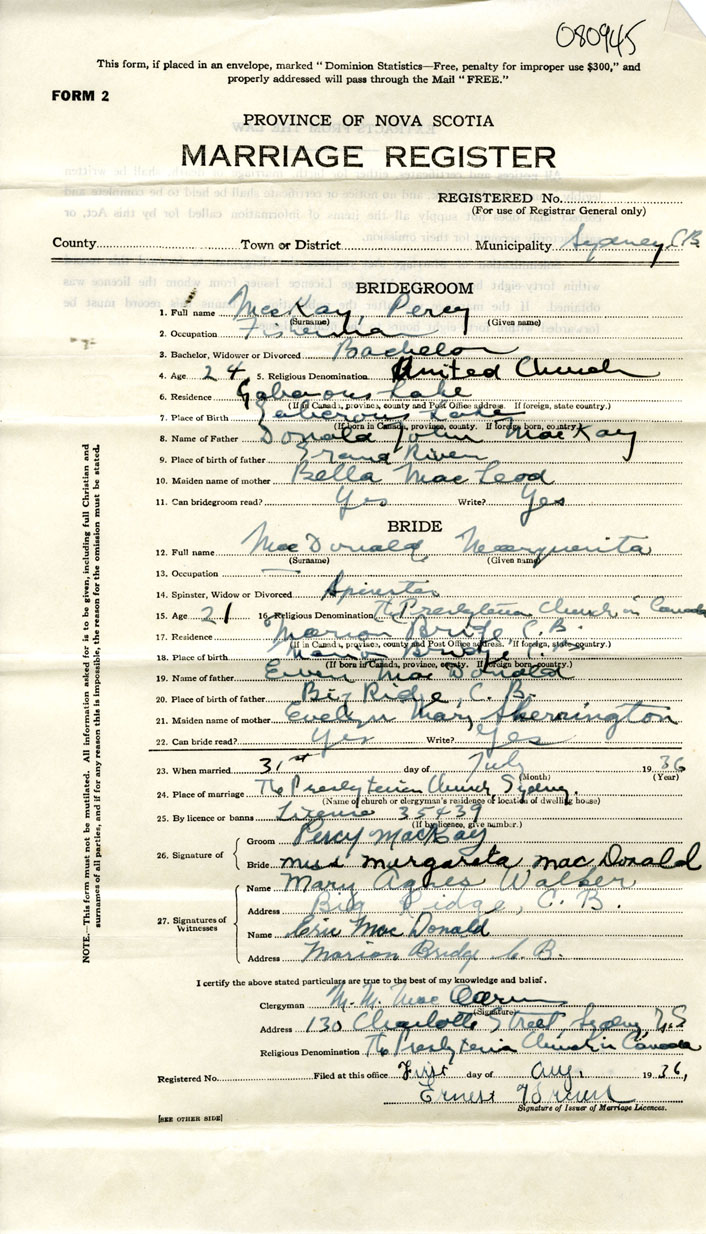 080945
This form, if placed in an envelope, marked "Dominion Statistics—Free, penalty for improper use $300," and
properly addressed will pass through the Mail "FREE."
FORM 2
PROVINCE OF NOVA SCOTIA
MARRIAGE REGISTER
REGISTERED No.
(For use of Registrar General only)
County Town or District Municipality Sydney C.B.
BRIDEGROOM
1. Full name MacKay, Percy
(Surname) (Given name)
2. Occupation Fisherman
3. Bachelor, Widower or Divorced Bachelor
4. Age 24 5. Religious Denomination United Church
6. Residence Gabarous Lake
(If in Canada, province, county and Post Office address. If foreign, state country.)
7. Place of Birth Gabarous Lake
(If born in Canada, province, county. If foreign born, country.)
8. Name of Father Donald John MacKay
9. Place of birth of father Grand River
10. Maiden name of mother Bella MacLeod
11. Can bridegroom read? Yes Write? Yes
BRIDE
12. Full name MacDonald, Marguerita
(Surname) (Given name)
13. Occupation —
14. Spinster, Widow or Divorced Spinster
15. Age 21 16. Religious Denomination The Presbyterian Church in Canada
17. Residence Marion Bridge C.B.
(If in Canada, province, county and Post Office address. If foreign, state country.)
18. Place of birth Marion Bridge C.
(If born in Canada, province, county. If foreign born, country.)
19. Name of father Ewen MacDonald
20. Place of birth of father Big Ridge, C.B.
21. Maiden name of mother Evelyn Mary Sherrington
22. Can bride read? Yes Write? Yes
23. When married 31st day of July 1936
(Month) (Year)
24. Place of marriage The Presbyterian Church, Sydney.
(Name of church or clergyman's residence or location of dwelling house)
25. By licence or banns License 35439
(If by licence, give number.)
26. Signature of Groom Percy MacKay
Bride miss margareta mac Donald
27. Signatures of Witnesses Name Mary Agnes Walker
Address Big Ridge, C.B.
Name Eric MacDonald
Address Marion Bridge C.B.
I certify the above stated particulars are true to the best of my knowledge and belief.
Clergyman M. M. Mac
(Signature)
Address 130 Charlotte Street, Sydney N.S
Religious Denomination The Presbyterian Church in Canada
Registered No. Filed at this office First day of Aug. 1936,
Ernest
Signature of Issuer of Marriage Licences.
[SEE OTHER SIDE]
NOTE.—This form must not be mutilated. All information asked for is to be given, including full Christian and
surnames of all parties, and if for any reason this is impossible, the reason for the omission must be stated.